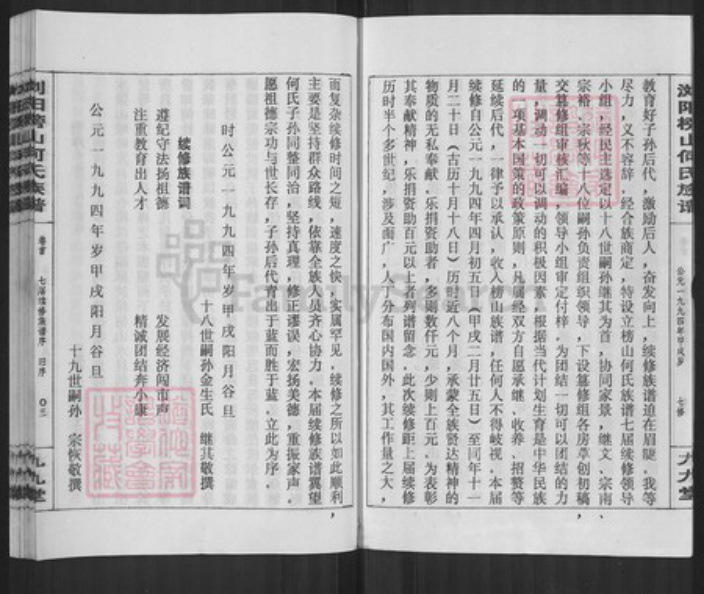 浏阳榜山何氏族谱
公元一九九四年甲戌岁
七修
九九堂
教育好子孙后代，激励后人，奋发向上，续修族谱迫在眉睫。我等
尽力，义不容辞，经合族商定，特设立榜山何氏族谱七届续修领导
小组，经民主选定以十八世嗣孙继其为首，协同家景，继文、宗南、
宗裕、宗秋等十八位嗣孙负责组织领导，下设篡修组各房草创初稿，
交篡修组审核汇编，领导小组审定付梓。为团结一切可以团结的力
量，调动一切可以调动的积极因素，根据当代计划生育是中华民族
的一项基本国策的政策原则，凡属经双方自愿承继、收养、招赘等
延续后代，一律予以承认，收入榜山族谱，任何人不得岐视。本届
续修自公元一九九四年四月初五（甲戌二月廿五日）至同年十一
月二十日（古历十月十八日）历时近八个月，承蒙全族贤达精神的
物质的无私奉献。乐捐资助者，多则数仟元，少则上百元。为表彰
其奉献精神，乐捐资助百元以上者列谱留念。此次续修距上届续修
历时半个多世纪，涉及面广，人丁分布国内国外，其工作量之大，
而复杂续修时间之短，速度之快，实属罕见。续修之所以如此顺利，
主要是坚持群众路线，依靠全族人员齐心协力。本届续修族谱翼望
何氏子孙同整同治，坚持真理，修正谬误，宏扬美德，重振家声。
愿祖德宗功与世长存，子孙后代青出于蓝而胜于蓝。立此为序。
时公元一九九四年岁甲戌阳月谷旦
十八世嗣孙金生氏 继其敬撰
续修族谱词
遵纪守法扬祖德 发展经济闯市声
注重教育出人才 精诚团结奔小康
公元一九九四年岁甲戌阳月谷旦
十九世嗣孙 宗恢敬撰
浏阳榜山何氏族谱
卷首
七届续修族谱序
旧序
〇三
九九堂
FamilySearch